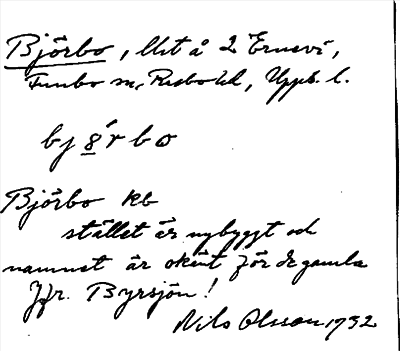 Björbo, litet å 2 Ernevi,
Funbo sn, Rasbo hd, Upps. l.
bj ö́ r b o
Björbo kb
stället är nybyggt och
namnet är okänt för de gamla
Jfr. Byrsjön!
Nils Olsson 1932